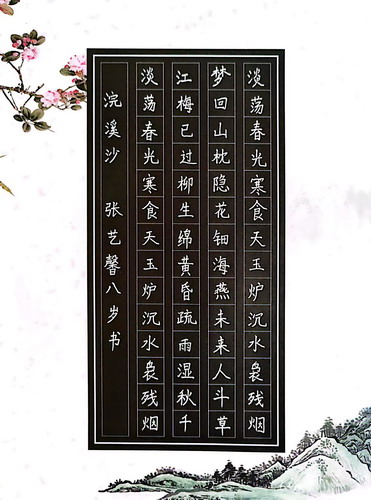 淡荡春光寒食天玉炉沉水袅残烟
梦回山枕隐花钿海燕未来人斗草
江梅已过柳生绵黄昏疏雨湿秋千
淡荡春光寒食天玉炉沉水袅残烟
浣溪沙 张艺馨八岁书